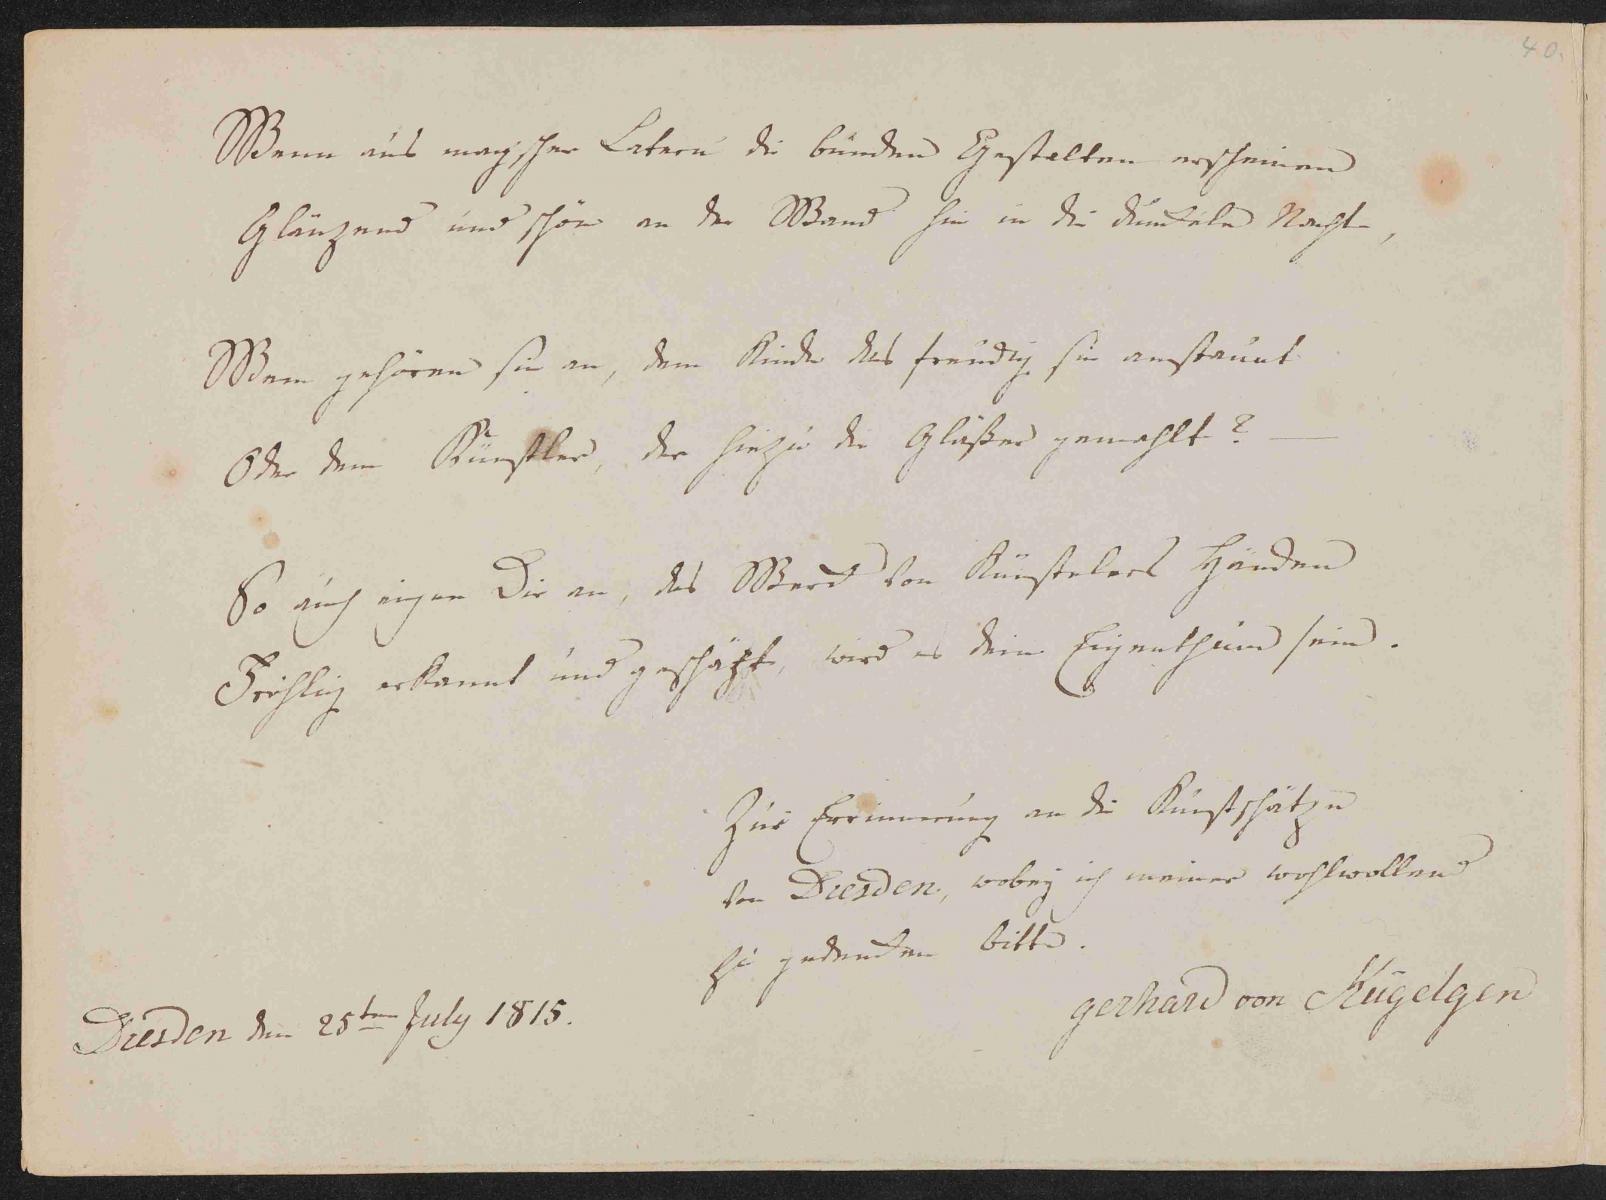 40.
Wenn aus magischer Latern die bunden Gestalten erscheinen
Glänzend und schön an der Wand hin in die dunkele Nacht,
Wem gehören sie an, dem Kinde das freudig sie anstaunt
Oder dem Künstler, der hiezu die Gläßer gemahlt? —
So auch eigne Dir an, das Werck von Künstelers Händen
Fröhlig erkannt und geschätzt, wird es dein Eigenthum sein.
Zur Errinnerung an die Kunstschätze
von Dresden, wobey ich meiner wohlwollend
zu gedencken bitte.
gerhard von Kügelgen
Dresden den 25ten July 1815.